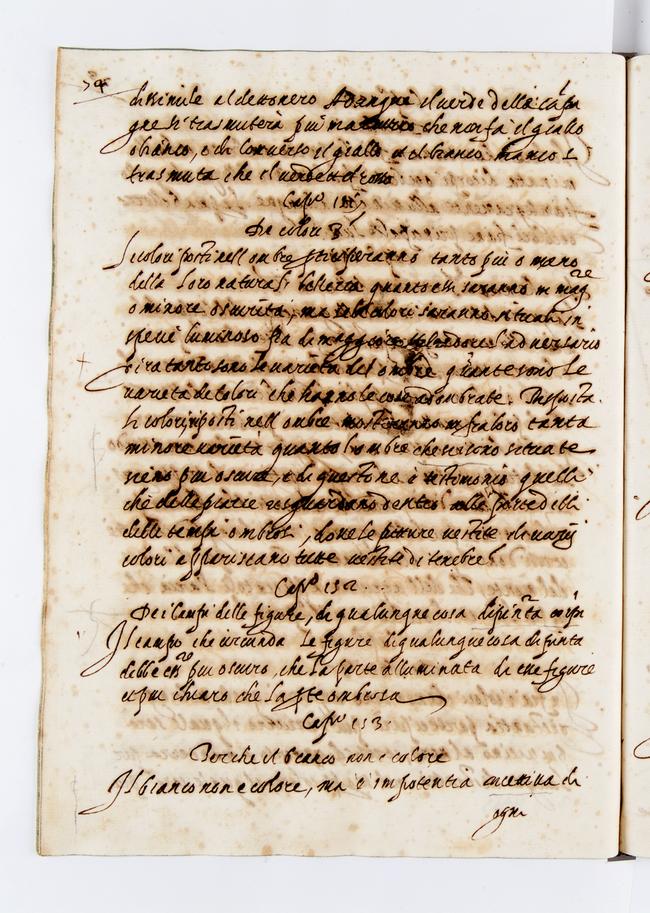 74
dissimile al detto nero Adunque il verde delle campa
gne si trasmuterà più che non fà il giallo
o bianco, e di converso il giallo e il bianco manco si
trasmuta che il verde et il rosso
Cap.º 151
De colori
I colori posti nell ombre parteciperanno tanto più o meno
della loro natural bellezza quanto essi saranno in magre
o minore oscurità, ma se li colori saranno situati in
spatio luminoso di maggiore splendore L'adversario
tanto sono le varietà del ombre quante sono le
varietà de colori che hanno le cose adombrate. Risposta
Li colori posti nell ombre mostreranno infraloro tanta
minore varietà quanto l ombre che vi sono situate
sieno più oscure, e di questo ne è testimonio quelli
che dalle piazze riguardano dentro alle porte delli
delli tempi ombrosi, dove le pitture vestite di varij
colori appariscano tutte vestite di tenebre
Cap.º 152
De i campi delle figure, di qualunque cosa dipinta
Il campo che circunda le figure di qualunque cosa dipinta
debbe essere più oscuro, che la parte alluminata di esse figure
et più chiaro che la parte ombrosa
Cap.º 153
Perche il bianco non e colore
Il bianco non e colore, ma è in potentia ricettiva di
ogni